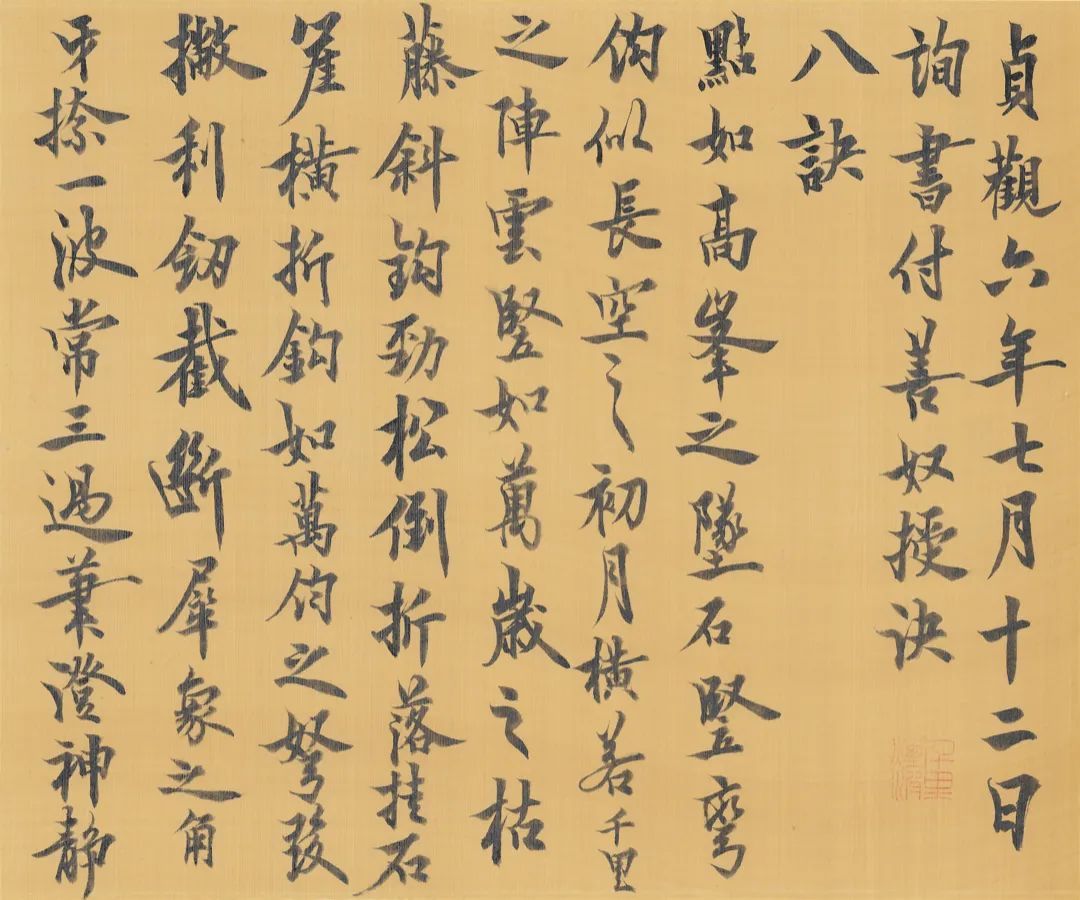 貞觀六年七月十二日
詢書付善奴授訣
八訣
點如高峯之墜石竪彎
鈎似長空之初月橫若千里
之陣雲竪如萬歲之枯
藤斜鈎勁松倒折落挂石
崖橫折鈎如萬鈞之弩發
撇利劒截斷犀象之角
牙捺一波常三過筆澄神靜